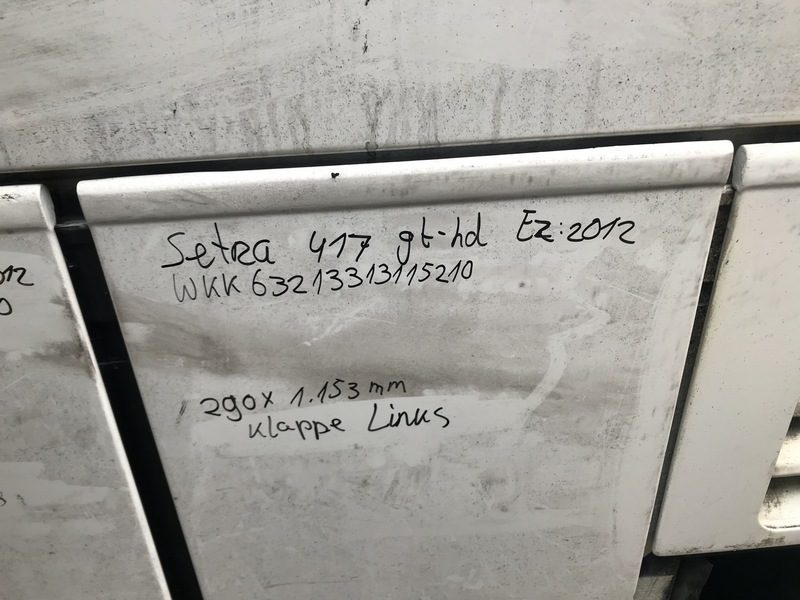 Setra 417 gt-hd Ez:2012
WKK63213313115210
290x 1.153mm
Klappe Links